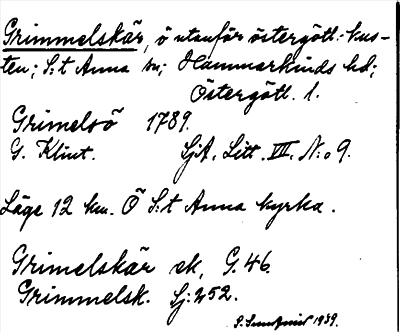 Grimmelskär, ö utanför östergötl. kus-
ten; S:t Anna sn; Hammarkinds hd;
Östergötl. l.
Grimelsö 1789.
G. Klint. SjA, Litt. III. N:o 9.
Läge 12 km. Ö S:t Anna kyrka.
Grimelskär ek, G. 46.
Grimmelsk. Sj: 252.
1939.